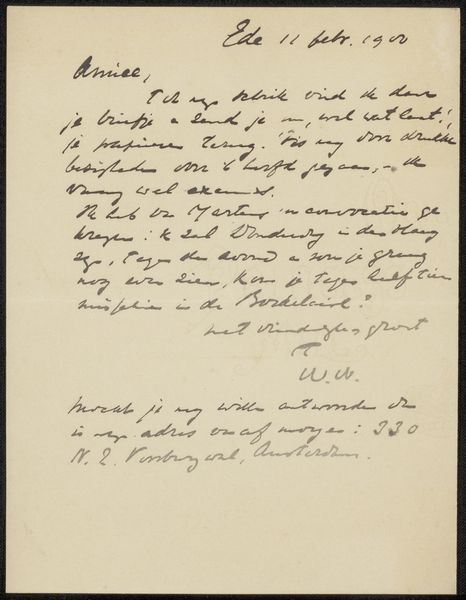 Ede 11 febr. 1900
Amice,
Tot mijn schrik vind ik daar
je briefje en zend je nu, wel wat laat!,
je papieren terug. 't Is mij door drukke
bezigheden over 't hoofd gegaan, en ik
vraag wel excuus.
Ik heb van Martens 'n convocatie ge
kregen: ik zal Donderdag in den Haag
zijn, tegen den avond en zou je graag
nog even zien, kom je tegen half tien
misschien in de Bordelaise?
met vriendelijke groet
T
W.W.
Mocht je mij willen antwoorden dan
is mijn adres vanaf morgen: 330
N.Z. Voorburgwal, Amsterdam.